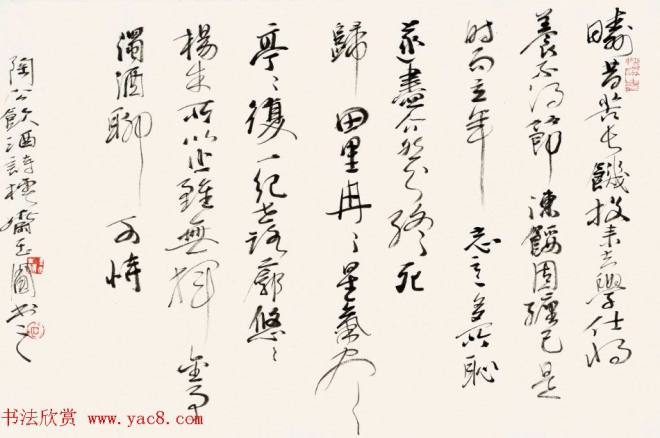 疇昔苦長饑投耒去學仕將
養不得節凍餒固纏己是
時向立年 志意多所恥
遂盡介然分終死
歸田里冉〻星氣流
亭〻復一紀世路廓悠〻
楊朱所以止雖無揮金事
濁酒聊可恃
陶公飲酒詩
书法欣赏 www.yac8.com